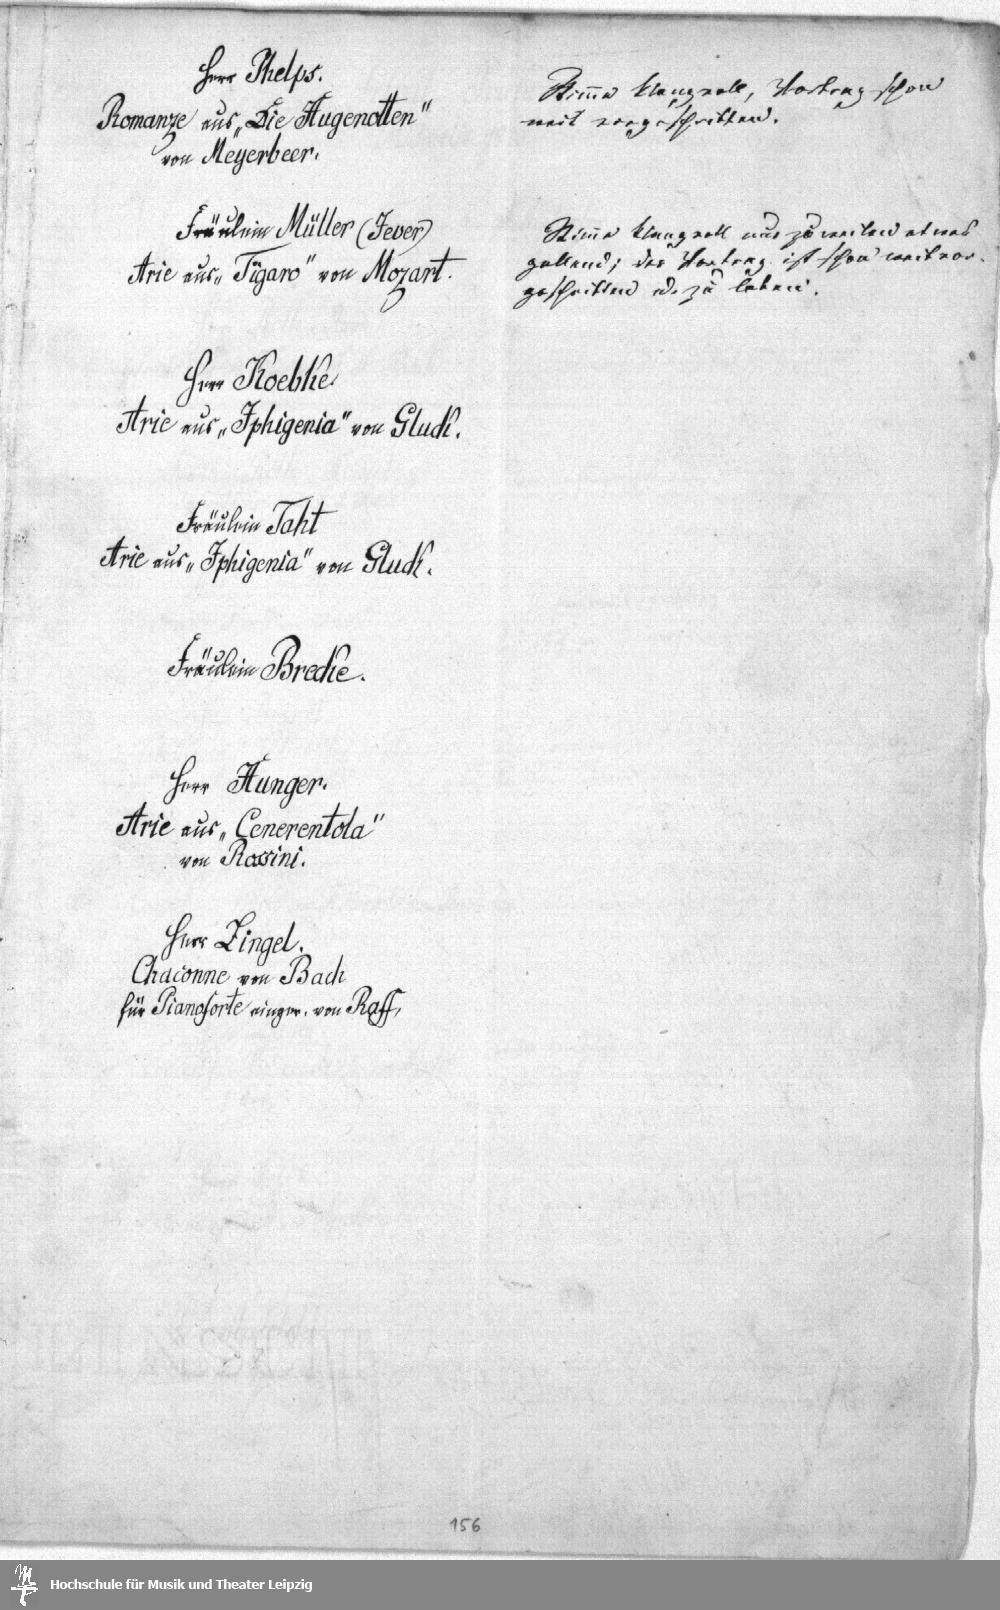 Herr Phelps.
Romanze aus „Die Hugenotten"
von Meyerbeer.
Stimme klangvoll, Vortrag schon
weit vorgeschritten.
Fräulein Müller (Jever)
Arie aus „Figaro" von Mozart.
Stimme klangvoll nur zuweilen etwas
gellend; der Vortrag ist schon weit vor-
geschritten u. zu loben.
Herr Koebke.
Arie aus „Iphigenia" von Gluck.
Fräulein Taht
Arie aus „Iphigenia" von Gluck.
Fräulein Brecke.
Herr Hunger.
Arie aus „Cenerentola"
von Rossini.
Herr Zingel.
Chaconne von Bach
für Pianoforte einger. von Raff.
156
Hochschule für Musik und Theater Leipzig